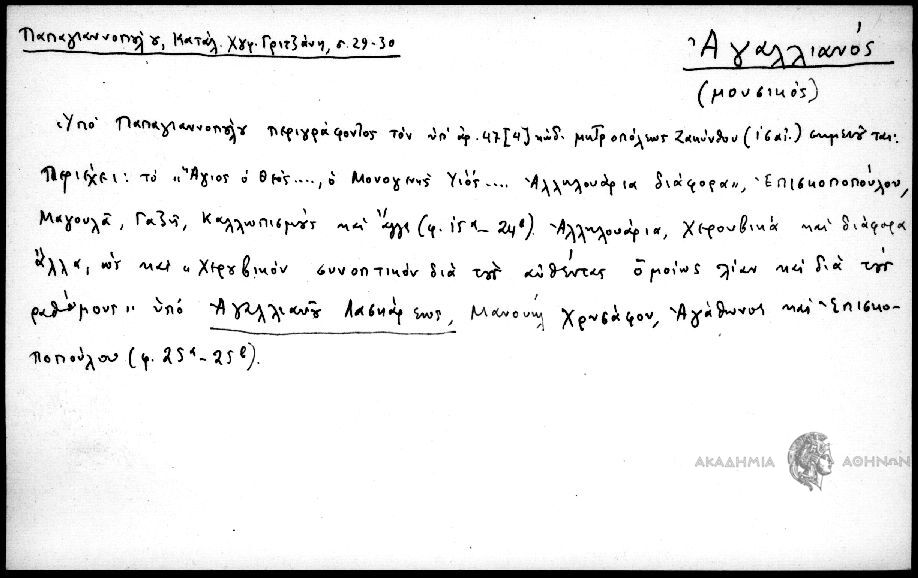 Παπαγιαννοπούλου, Κατάλ. Χφ. Γριτζάνη, σ. 29-30
Ἀγαλλιανός
(μουσικός)
Ὑπό Παπαγιαννοπούλου περιγράφοντος τόν ὑπ' ἀρ. 47[4] κώδ. μητροπόλεως Ζακύνθου (ιϛ αἰ.) σημειοῦται:
Περιέχει: τό «Ἅγιος ὁ Θεός...., ὁ Μονογενής Υἱός.... Ἀλληλουάρια διάφορα», Ἐπισκοποπούλου,
Μαγουλᾶ, Γαζῆ, Καλλωπισμούς καί ἄλλα (φ. 15α - 24β). Ἀλληλουάρια, Χερουβικά καί διάφορα
ἄλλα, ὡς καί «Χερουβικόν συνοπτικόν διά τούς αὐθέντας ὁμοίως λίαν καί διά τούς
ραθύμους» ὑπό Ἀγαλλιανοῦ Λασκάρεως, Μανουήλ Χρυσάφου, Ἀγάθωνος καί Ἐπισκο-
ποπούλου (φ. 25α - 25β).
ΑΚΑΔΗΜΙΑ ΑΘΗΝΩΝ